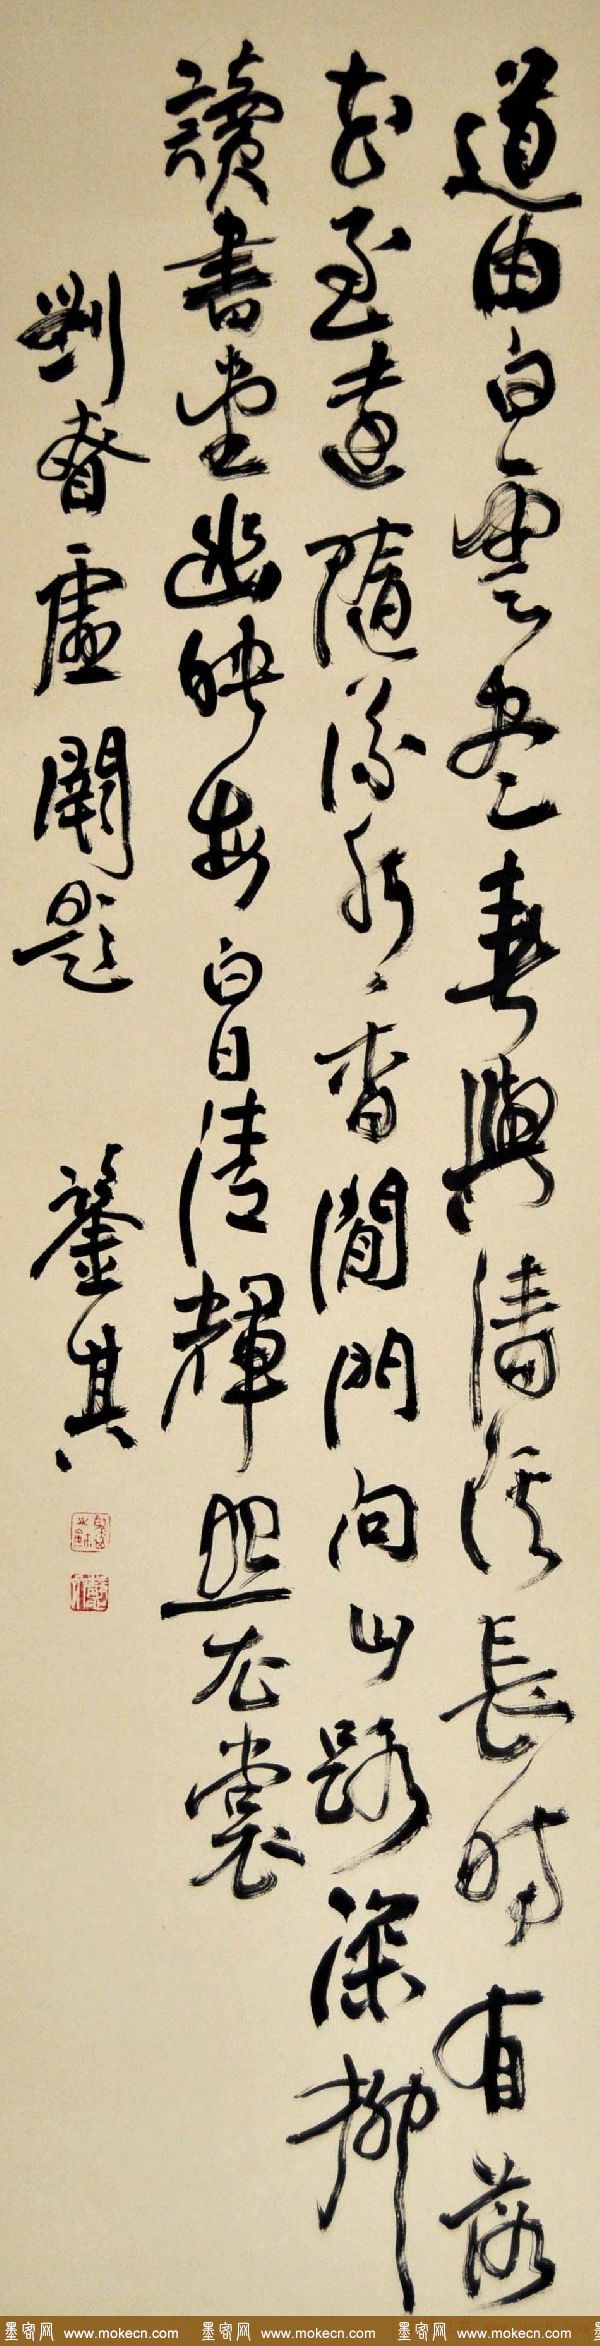 道由白雲盡春與清溪長時有落
花至遠隨流水香閒門向山路深柳
讀書堂幽映每白日清輝照衣裳
劉眘虛闕題 其
墨客网 www.mokecn.com 墨客网 www.mokecn.com 墨客网 www.mokecn.com